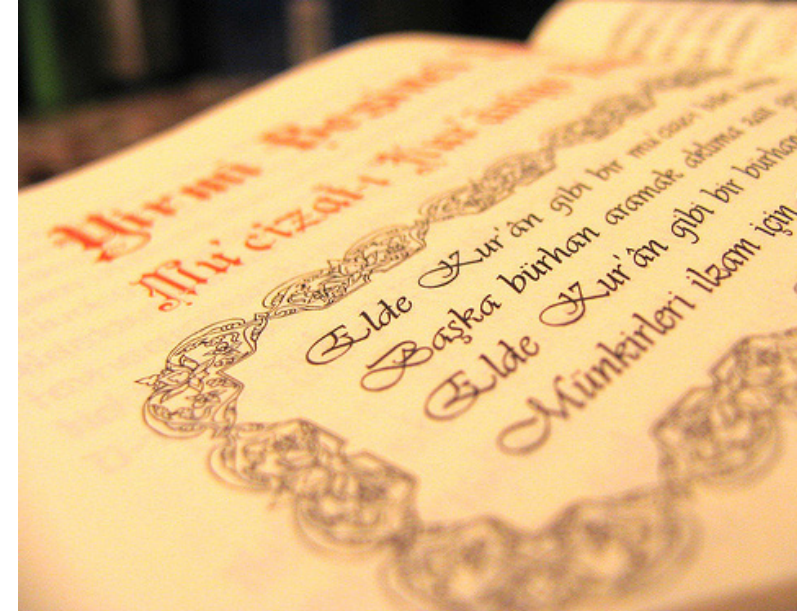 Yirmi Beşinci
Mu'cizat-ı Kur'aniye
Elde Kur'ân gibi bir mu'cize
Başka bürhan aramak aklıma zait
Elde Kur'ân gibi bir bürhan
Münkirleri ilzam için